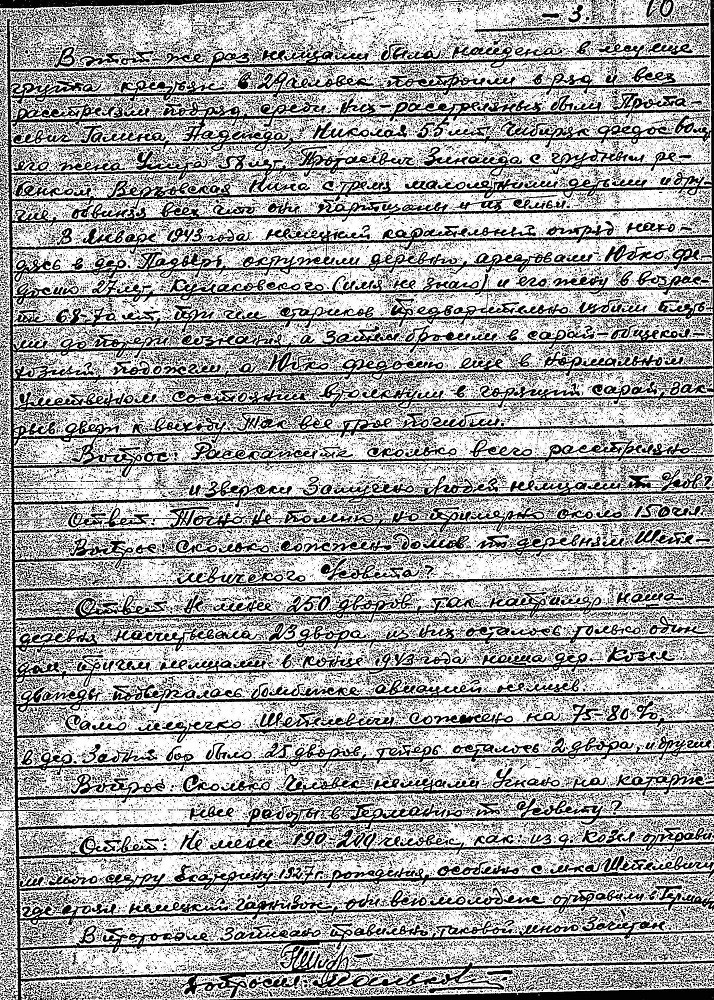 - 3. 10
В этот же раз немцами была найдена в лесу еще
группа крестьян в 29 человек построили в ряд и всех
расстреляли подряд, среди них - расстрелянных были Прота-
севич Галина, Надежда, Николай 55 лет, Чибиряк Федос
его жена Улита 58 лет, Протасевич Зинаида с грудным ре-
бенком, Верховская Нина с тремя малолетними детьми и дру-
гие, обвиняя всех что они партизаны и их семьи.
В январе 1943 года немецкий карательный отряд нахо-
дясь в дер. Падверь, окружили деревню, арестовали Юбко Фе-
досию 27 лет, Кулаковского (имя не знаю) и его жену в возрас-
те 68-70 лет, при чем стариков предварительно избили
ми до потери сознания, а затем бросили в сарай - общекол-
хозный, подожгли, а Юбко Федосию еще в нормальном
умственном состоянии втолкнули в горящий сарай, зак-
рыв двери к выходу. Так все трое погибли.
Вопрос: Расскажите сколько всего расстреляно
и зверски замучено людей немцами по с/сов?
Ответ: Точно не помню, но примерно около 150 чел.
Вопрос: Сколько сожжено домов по деревням Шепе-
левичского с/совета?
Ответ: Не менее 250 дворов, так например наша
деревня насчитывала 23 двора, из них осталось только один
дом, причем немцами в конце 1943 года наша дер. Козел
дважды подвергалась бомбежке авиацией немцев.
Само местечко Шепелевичи сожжено на 75-80%,
в дер. Забний бор было 25 дворов, теперь осталось 2 двора, и другие
Вопрос: Сколько человек немцами угнано на каторж-
ные работы в Германию по с/совету?
Ответ: Не менее 190-200 человек, как: из д. Козел отправи-
ли мою сестру Екатерину 1927 г. рождения, особенно с м-ка Шепелевичи,
где стоял немецкий гарнизон, они всю молодежь отправили в Герман
В протоколе записано правильно, таковой мною зачитан.
Допросил: